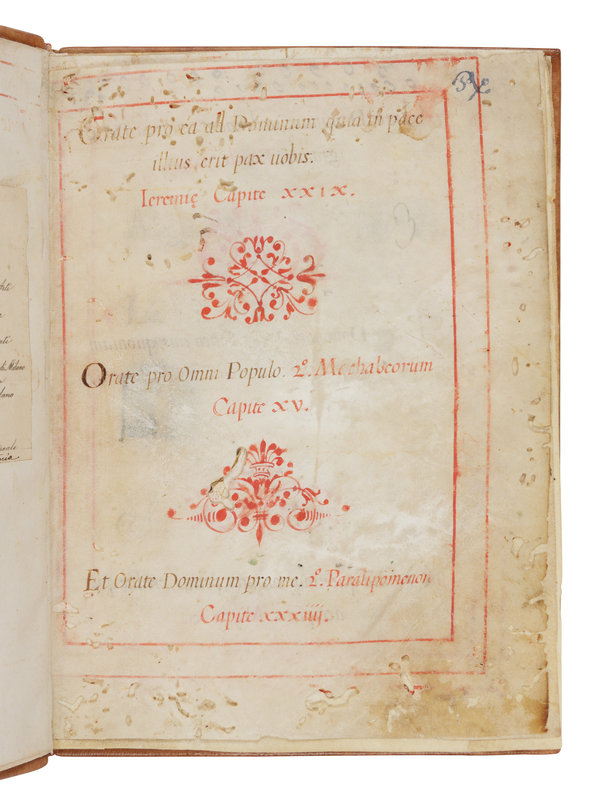 Orate pro ea ad Dominum quia in pace
illius erit pax uobis.
Ieremię Capite XXIX.
3
Orate pro Omni Populo. 2º. Machabeorum
Capite XV.
Et Orate Dominum pro me. 2º. Paralipomenon
Capite XXXIIII.